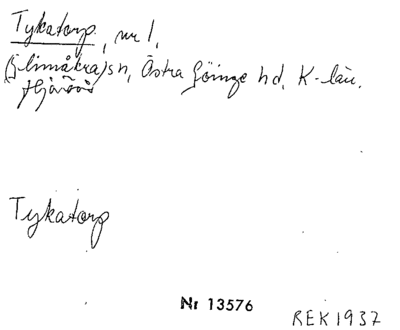 Tykatorp, nr 1,
(Glimåkra) sn, Östra Göinge hd, K-län.
Hjärsås
Tykatorp
Nr 13576
REK 1937